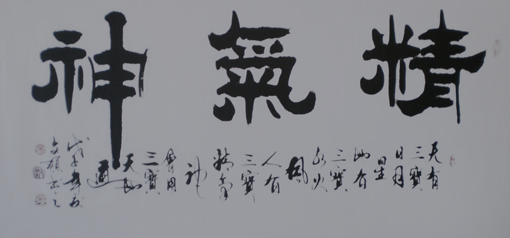 精氣神
天有
三寶
日月
星
地有
三寶
水火
風
人有
三寶
精氣
神
會用
三寶
天地
通